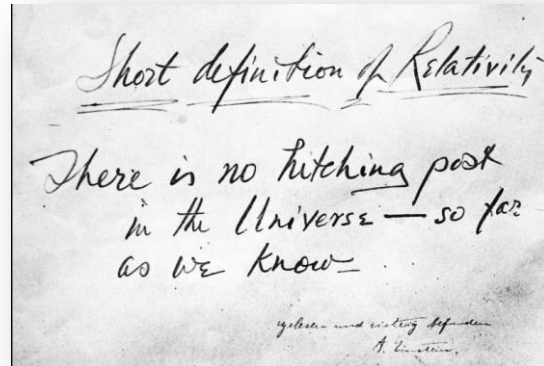 Short definition of Relativity
There is no hitching post
in the Universe — so far
as we know
gelesen und richtig befunden
A. Einstein.